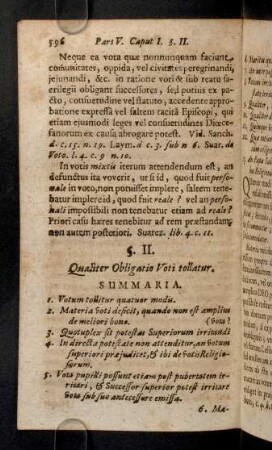 596 Pars V. Caput I. §. II.
Neque ea vota quæ nonnunquam faciunt
communitates, oppida, vel civitates peregrinandi,
jejunandi, &c. in ratione voti & sub reatu sa-
crilegii obligant successores, sed potius ex pa-
cto, consuetudine vel statuto, accedente appro-
batione expressâ vel saltem tacitâ Episcopi, qui
etiam ejusmodi leges vel consuetudines Diœce-
sanorum ex causâ abrogare potest. Vid. Sanch.
d. c. 15. n. 19. Laym. d. c. 5. sub n 6. Suar. de
Voto. l. 4. c. 9 n. 10.
In votis mixtis iterum attendendum est, an
defunctus ita voverit, ut si id, quod fuit perso-
nale in voto, non potuisset implere, saltem tene-
batur implere id, quod fuit reale? vel an perso-
nali impossibili non tenebatur etiam ad reale?
Priori casu hæres tenebitur ad rem præstandam,
non autem posteriori. Suarez. lib. 4. c. 11.
§. II.
Qualiter Obligatio Voti tollatur.
SUMMARIA.
1. Votum tollitur quatuor modis.
2. Materia voti deficit, quando non est amplius
de meliori bono. (vota)
3. Quotuplex sit potestas Superiorum irritandi
4. In directa potestate non attenditur, an votum
superiori præjudicet, & ibi de votis Religio-
sorum.
5. Vota pupilli possunt etiam post pubertatem ir-
ritari, & Successor superior potest irritare
vota sub suo antecessore emissa.
6. Ma-